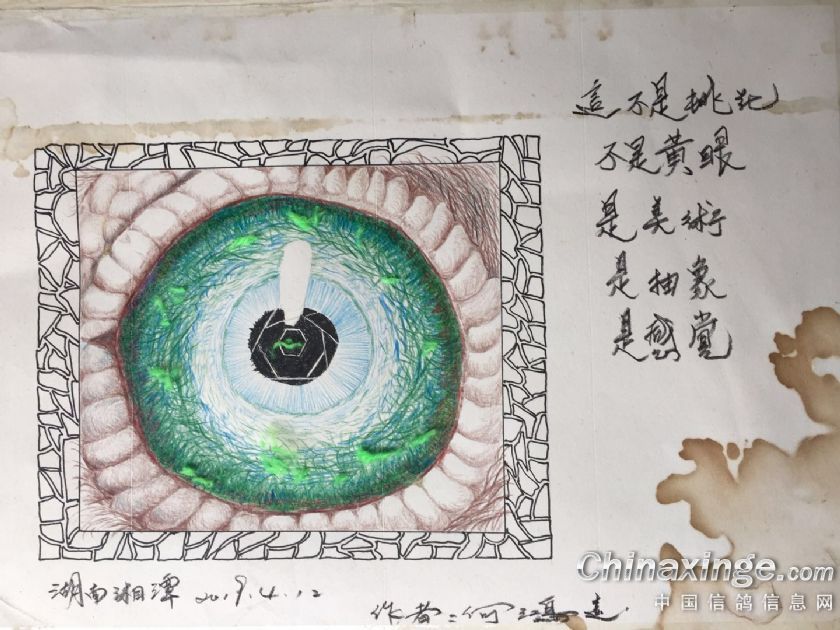 這不是桃花
不是黃眼
是美術
是抽象
是感覺
湖南湘潭 2019.4.12
作者:何
Chinaxinge.com
中国信鸽信息网